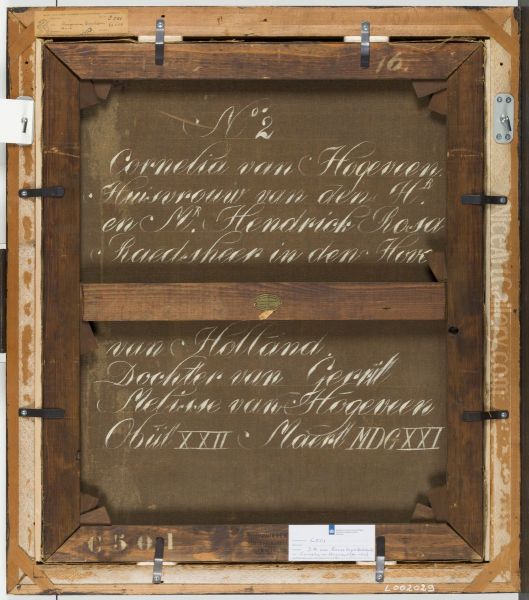 C 501
16.
No. 2
Cornelia van Hogeveen.
Huisvrouw van den H.r
en Mr. Hendrick Rosa
Raedsheer in den Hove
van Holland.
Dochter van Gerrit
Melisse van Hogeveen
Obiit XXII Maert MDCXXI
C501
C501
L002029